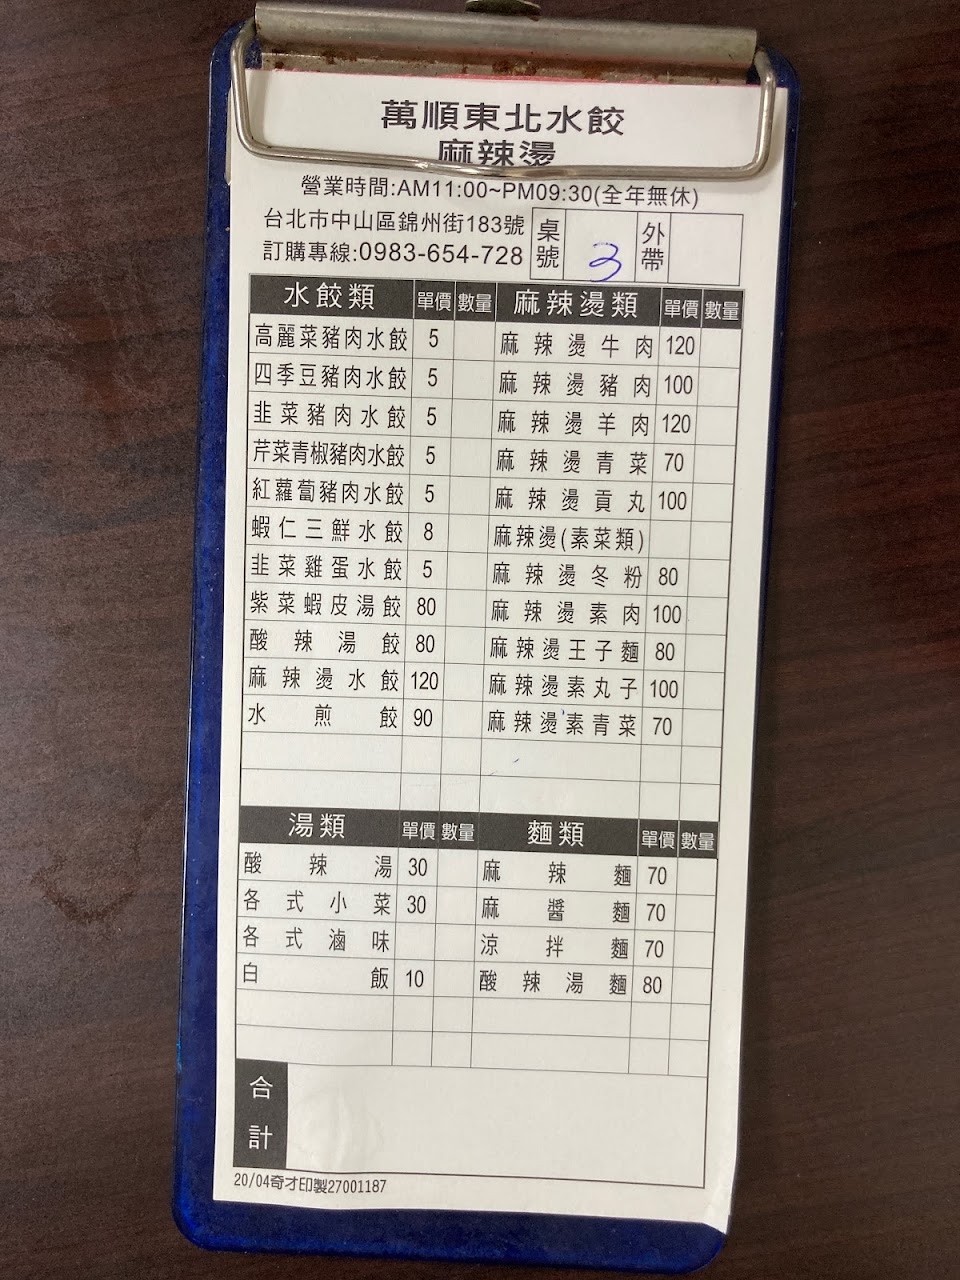 萬順東北水餃
麻辣燙
營業時間:AM11:00~PM09:30(全年無休)
台北市中山區錦州街183號
訂購專線:0983-654-728
桌號 3 外帶
水餃類 單價 數量
高麗菜豬肉水餃 5
四季豆豬肉水餃 5
韭菜豬肉水餃 5
芹菜青椒豬肉水餃 5
紅蘿蔔豬肉水餃 5
蝦仁三鮮水餃 8
韭菜雞蛋水餃 5
紫菜蝦皮湯餃 80
酸辣湯餃 80
麻辣燙水餃 120
水煎餃 90
麻辣燙類 單價 數量
麻辣燙牛肉 120
麻辣燙豬肉 100
麻辣燙羊肉 120
麻辣燙青菜 70
麻辣燙貢丸 100
麻辣燙(素菜類)
麻辣燙冬粉 80
麻辣燙素肉 100
麻辣燙王子麵 80
麻辣燙素丸子 100
麻辣燙素青菜 70
湯類 單價 數量
酸辣湯 30
各式小菜 30
各式滷味
白飯 10
麵類 單價 數量
麻辣麵 70
麻醬麵 70
涼拌麵 70
酸辣湯麵 80
合計
20/04奇才印製27001187